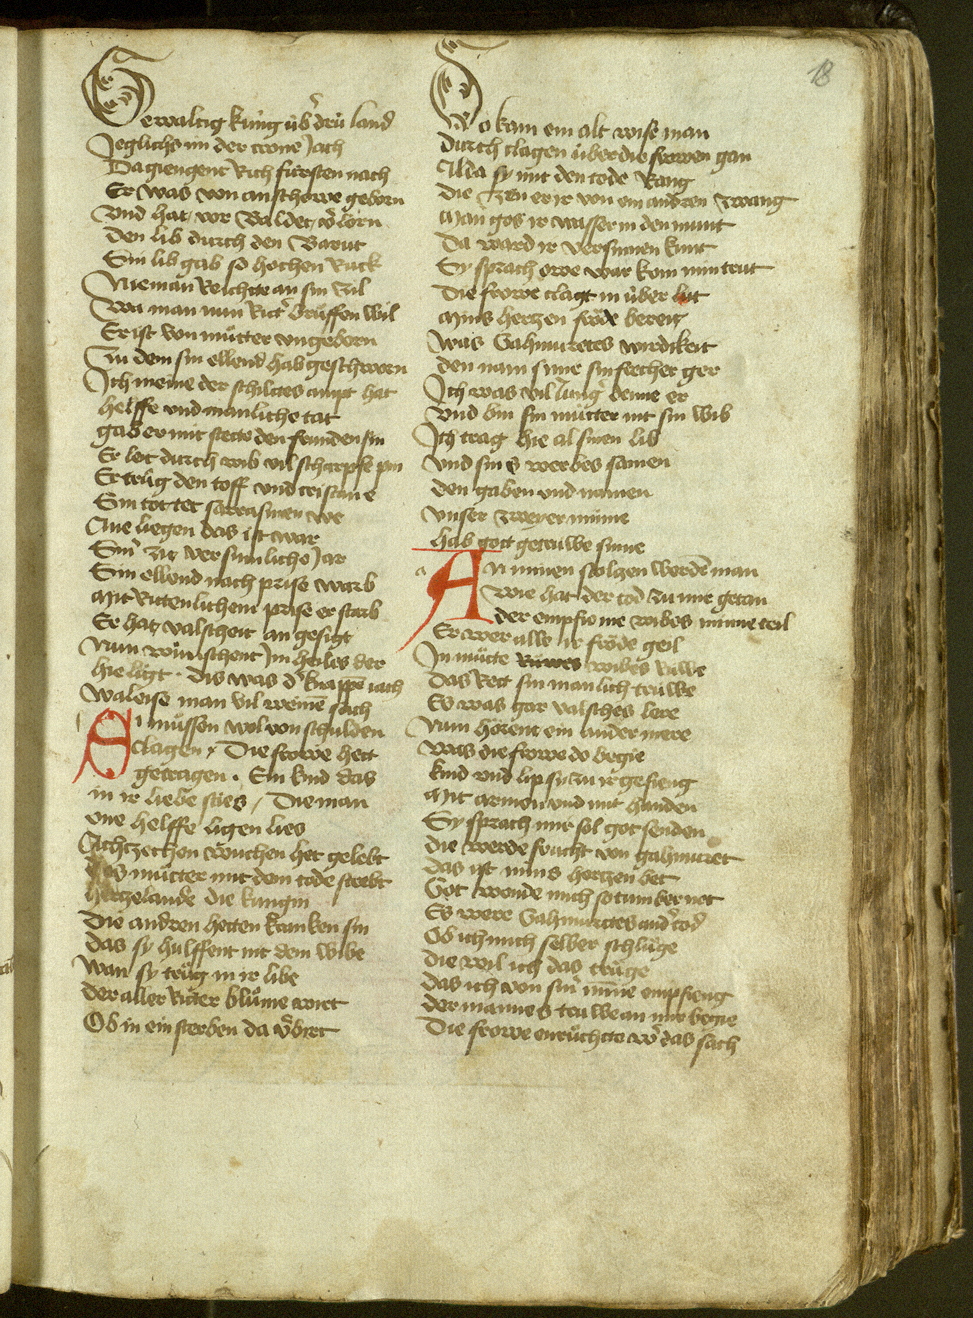 18
Gewaltig kúng úb̉ drú land
Jeglichs im der crone jach
Da giengent Rich fúrsten nach
Er was von anschowe geborn
Vnd hat vor Baldec v̉lorn
den lib durch den Baruc
Sin lib gab so hochen Ruck
Nieman Reichtte an sin zil
Wa man nun Ritt̉ brúffen wil
Er ist von mútter vngeborn
Zu dem sin ellend hab geschworn
Ich meine der schiltes ampt hat
helffe vnd manliche tat
gab er mit stette den frunden sin
Er let durch wib vil scharpfe pin
Er trúg den toff vnd cristan e
Sin tot tet sarrasinen we
Ane liegen das ist war
Sin̉ zit versinnliche jar
Sin ellend nach prise warb
Mit Ritterlichem prise er starb
Er hat valscheit an gesigt
Nun wúnschent jm heiles der
hie ligt. Dis was d̉ knappē iach
waleise man vil weinē sach
Si mússen wol von schulden
clagen / Die frowe hett
getragen. Ein kind das
in ir liebe sties / Die man
one helffe ligen lies
Achtzechen wuchen het gelebt
des mútter mit dem tode strebt
hertzelaude die kúngin
Die andren hetten kranken sin
das sy hulffent nit dem wibe
wan sy trúg in ir libe
der aller Ritter blúme wirt
Ob in ein sterben da v̉birt
Do kam ein alt wise man
durch clagen úber die frowen gan
Alda sy mit den tode Rang
die zen er ir von ein andren zwang
Man gos ir wasser in den munt
Da ward ir versinnen kunt
Sy sprach owe war kom min trut
Die frowe clagt in úber lut
Mins hertzen fróde bereit
Was Gahmuretes wirdikeit
den nam mine sin frecher ger
Ich was vil iung̉ denne er
Vnd bin sin mútter vnt sin wib
Ich trag hie al sinen lib
Vnd sins werbes samen
den gaben vnd namen
Vnser zweyer minne
hab gott getruwe sinne
An minen stoltzen werdē man
Wie hat der tod zu mir getan
der empfie nie wibes minne teil
Er wer alle ir fróde geil
In mútte Rúwes wibes Rúwe
Das Rett sin manlich trúwe
Es was gar valsches lere
Nun hórent ein ander mere
Was die frowe do begie
kind vnd lip sy zu ir gefieng
Mit armen vnd mit handen
Sy sprach mir sol got senden
die werde frucht von gahmuret
Das ist mins hertzen bet
Got wende mich so tumber not
Es were Gahmurettes and̉ tod
Ob ich mich selber schlúge
die wil ich das trúge
das ich von sin̉ mīne empfieng
der mannes truwe an mir begie
Die frowe enrúchtte wer das sach